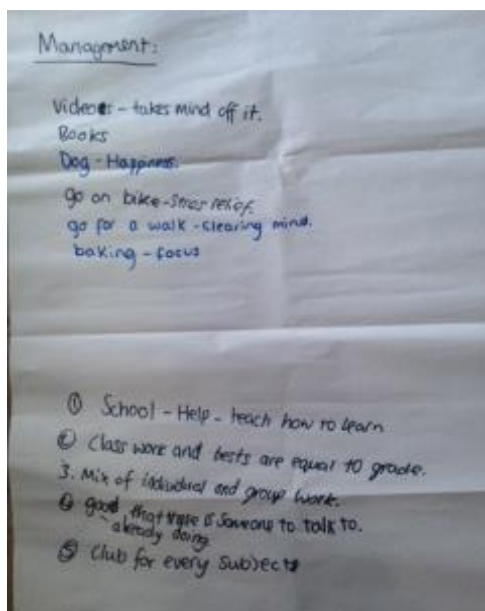 Managment:
Videos - takes mind off it.
Books
Dog - Happiness.
go on bike - stress relief.
go for a walk - clearing mind.
baking - focus
① School - Help - teach how to learn
② Class work and tests are equal to grade.
3. Mix of individual and group work.
④ good that there is someone to talk to.
already doing
⑤ Club for every subject